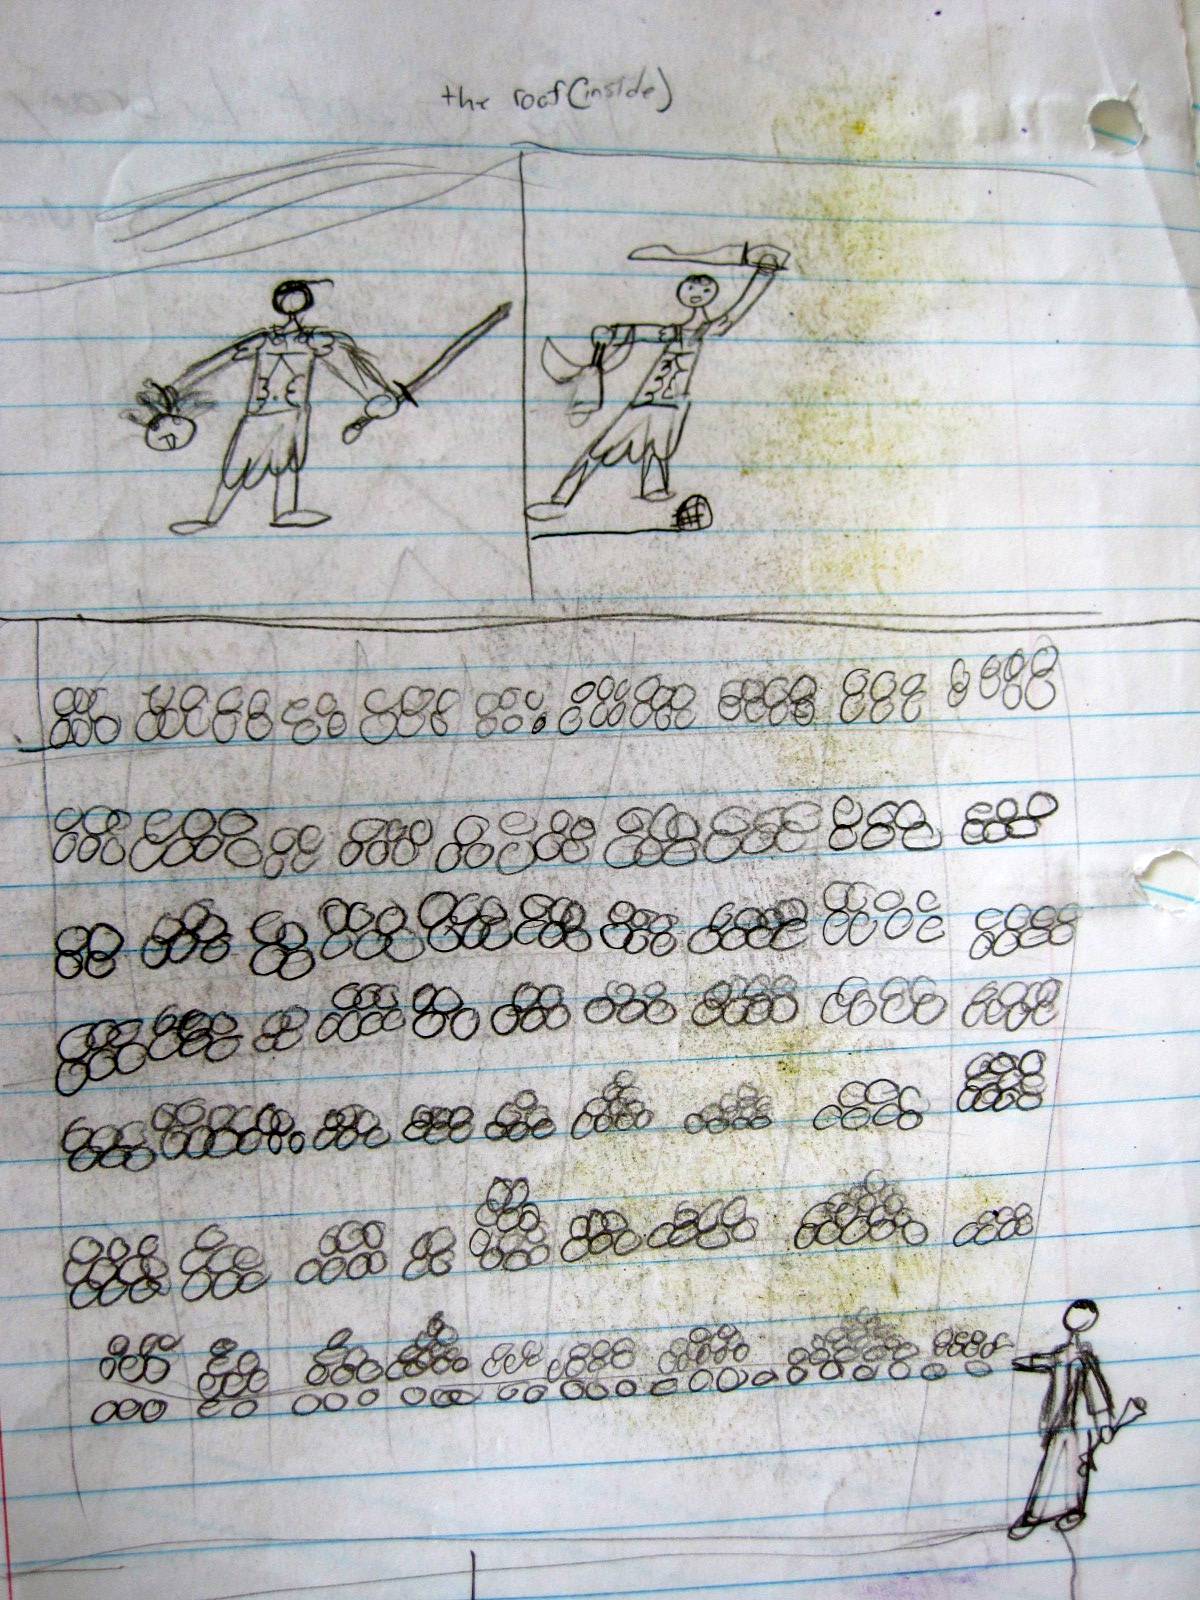 the roof (inside)